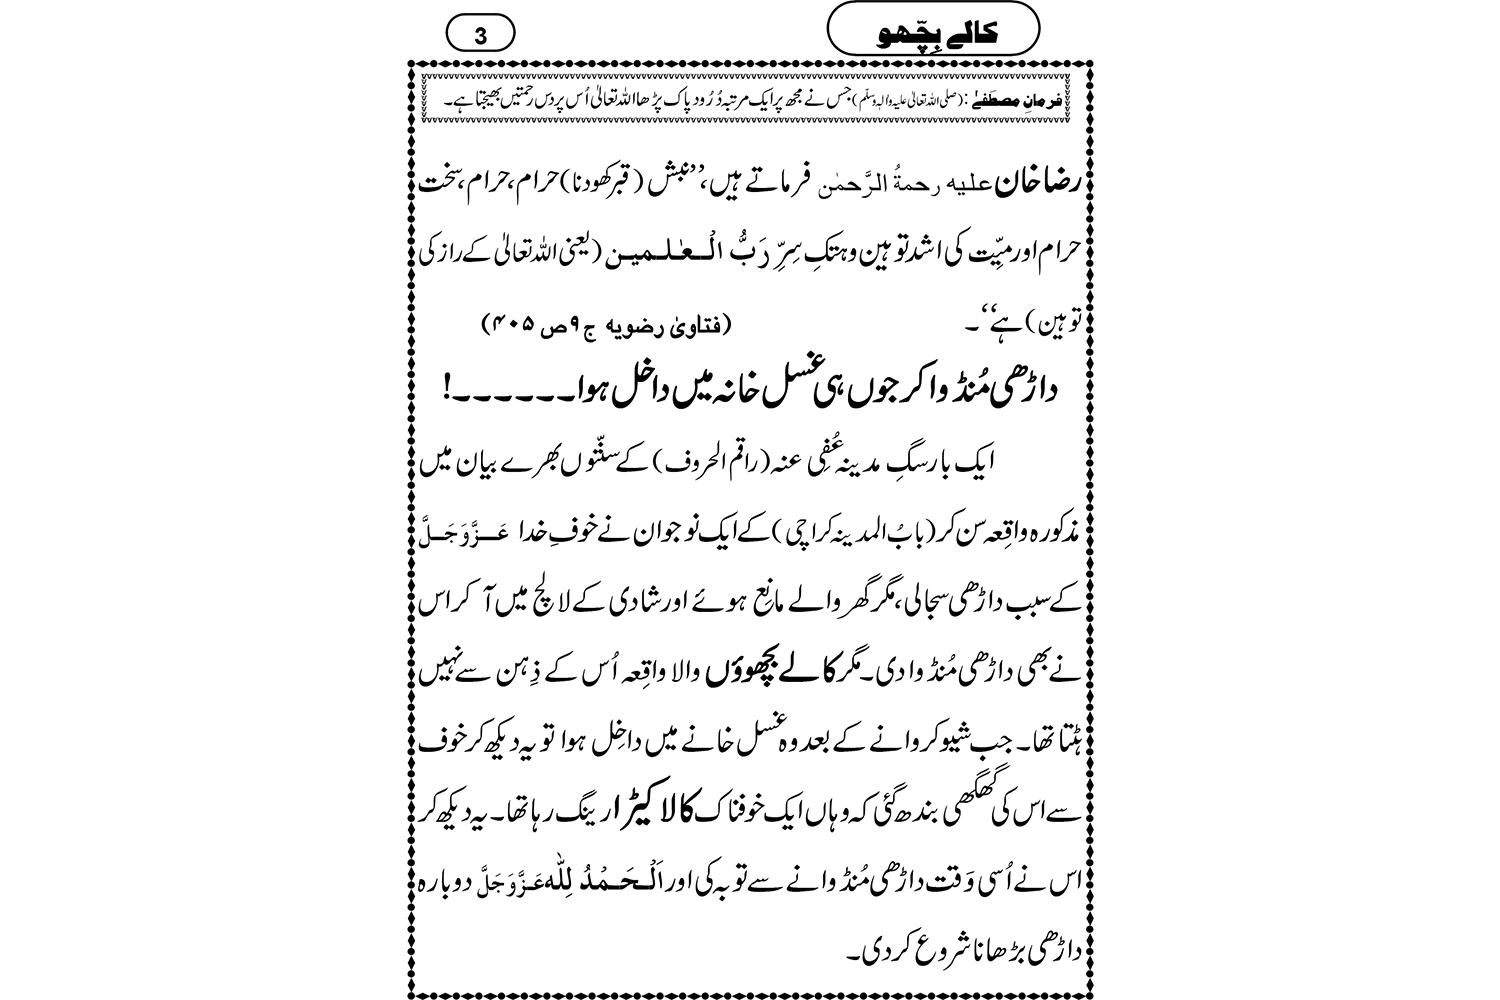 کالے بِچّھو
3
فرمانِ مصطَفےٰ :(صلی اللہ تعالیٰ علیہ والہٖ وسلّم) جس نے مجھ پر ایک مرتبہ دُرُود پاک پڑھا اللہ تعالیٰ اُس پر دس رحمتیں بھیجتا ہے۔
رضا خان علیہ رحمۃُ الرَّحمٰن فرماتے ہیں،’’نبش (قبر کھودنا) حرام، حرام، سخت
حرام اور میِّت کی اشد توہین وہتکِ سِرِّ رَبُّ الْعٰلمین (یعنی اللہ تعالیٰ کے راز کی
توہین) ہے‘‘۔ (فتاویٰ رضویہ ج۹ ص ۴۰۵)
داڑھی مُنڈوا کر جوں ہی غسل خانہ میں داخل ہوا۔۔۔۔۔۔!
ایک بار سگِ مدینہ عُفِی عنہ (راقم الحروف) کے سنّتوں بھرے بیان میں
مذکورہ واقِعہ سن کر (بابُ المدینہ کراچی) کے ایک نوجوان نے خوفِ خدا عَزَّوَجَلَّ
کے سبب داڑھی سجالی، مگر گھر والے مانِع ہوئے اور شادی کے لالچ میں آ کر اس
نے بھی داڑھی مُنڈوادی۔ مگر کالے بچھوؤں والا واقِعہ اُس کے ذِہن سے نہیں
ہٹتا تھا۔ جب شیو کروانے کے بعد وہ غسل خانے میں داخِل ہوا تو یہ دیکھ کر خوف
سے اس کی گھگھی بندھ گئی کہ وہاں ایک خوفناک کالا کیڑا رینگ رہا تھا۔ یہ دیکھ کر
اس نے اُسی وَقت داڑھی مُنڈوانے سے توبہ کی اور اَلْحَمْدُ لِلّٰہ عَزَّوَجَلَّ دوبارہ
داڑھی بڑھانا شروع کردی۔